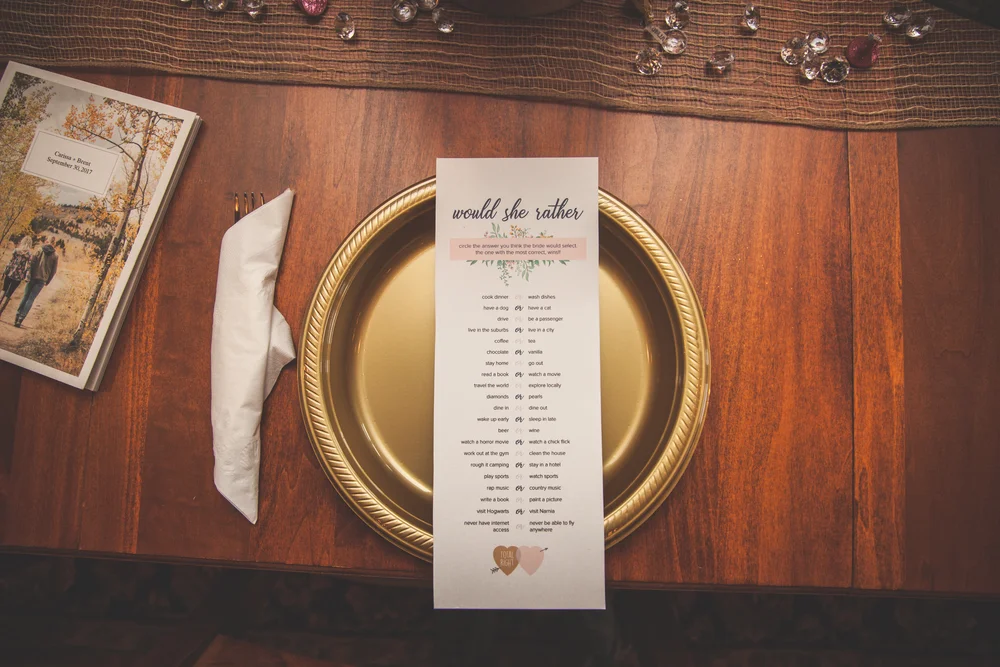 Carina + Brent
September 30, 2017
would she rather
circle the answer you think the bride would select.
the one with the most correct, wins!!
cook dinner or wash dishes
have a dog or have a cat
drive or be a passenger
live in the suburbs or live in a city
coffee or tea
chocolate or vanilla
stay home or go out
read a book or watch a movie
travel the world or explore locally
diamonds or pearls
dine in or dine out
wake up early or sleep in late
beer or wine
watch a horror movie or watch a chick flick
work out at the gym or clean the house
rough it camping or stay in a hotel
play sports or watch sports
rap music or country music
write a book or paint a picture
visit Hogwarts or visit Narnia
never have internet access or never be able to fly anywhere
TOTAL
RIGHT